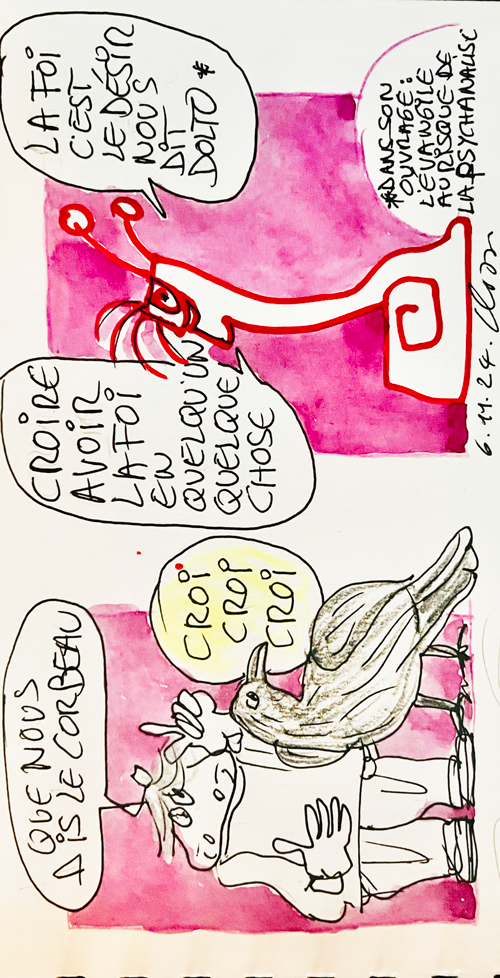 QUE NOUS
DIS LE CORBEAU
CROI
CROI
CROI
CROIRE
AVOIR
LA FOI
EN
QUELQU'UN
QUELQUE
CHOSE
LA FOI
C'EST
LE DÉSIR
NOUS
DIT
DOLTO *
*DANS SON
OUVRAGE:
L'EVANGILE
AU RISQUE DE
LA PSYCHANALISE
6.11.24.